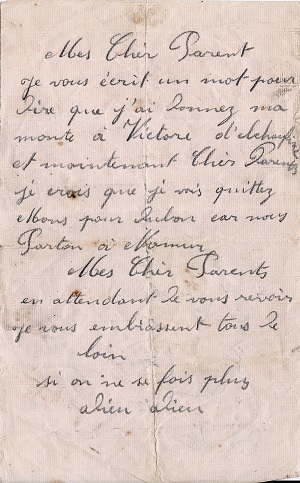 Mes Chèr Parent
Je vous écrit un mot pour
dire que j'ai donnez ma
monte à Victore
et maintenant Chèr Parents
je crois que je vais quittez
Mons pour car nous
Parton à Namur
Mes Chèr Parents
en attendant de vous revoir
je vous embrassent tous de
loin
si on ne se fois plus
adieu adieu